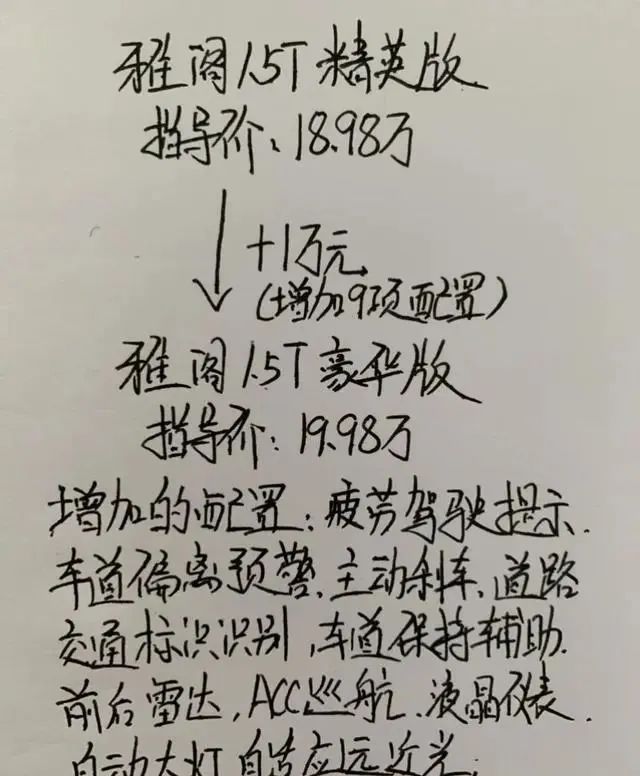 雅阁1.5T精英版
指导价:18.98万
+1万元
(增加9项配置)
雅阁1.5T豪华版
指导价:19.98万
增加的配置:疲劳驾驶提示、
车道偏离预警、主动刹车、道路
交通标识识别,车道保持辅助、
前后雷达,ACC巡航、液晶仪表、
自动大灯、自适应远近光,